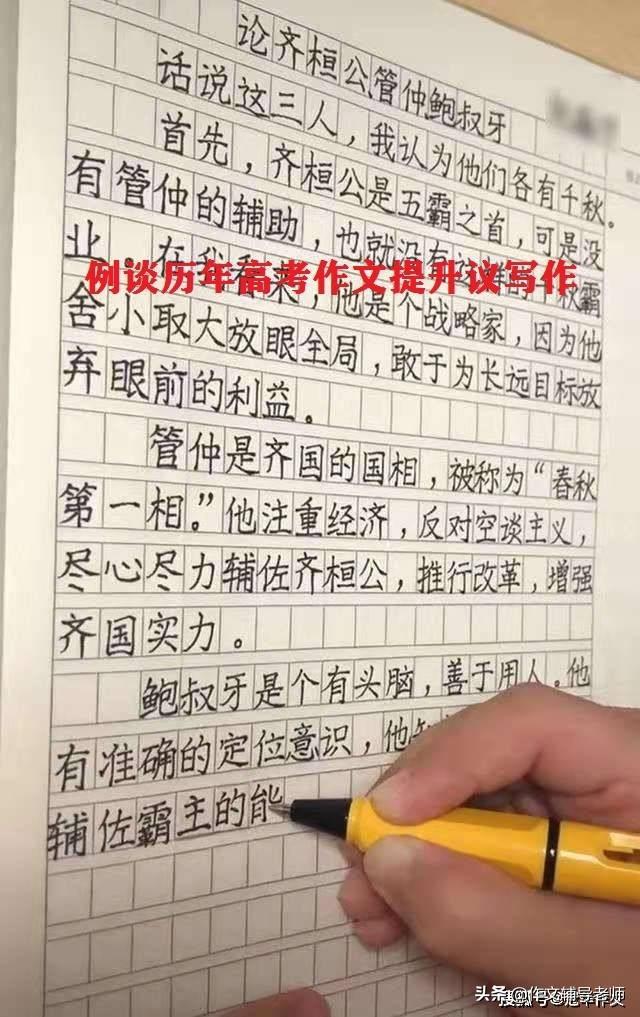 论齐桓公管仲鲍叔牙
话说这三人，我认为他们各有千秋。
首先，齐桓公是五霸之首，可是没
有管仲的辅助，也就没有
例谈历年高考作文提升议写作
业。在我看来，他是个战略家，因为他
舍小取大放眼全局，敢于为长远目标放
弃眼前的利益。
管仲是齐国的国相，被称为“春秋
第一相。”他注重经济，反对空谈主义，
尽心尽力辅佐齐桓公，推行改革，增强
齐国实力。
鲍叔牙是个有头脑，善于用人。他
有准确的定位意识，他知
辅佐霸主的能
头条@作文辅导老师
搜狐号@